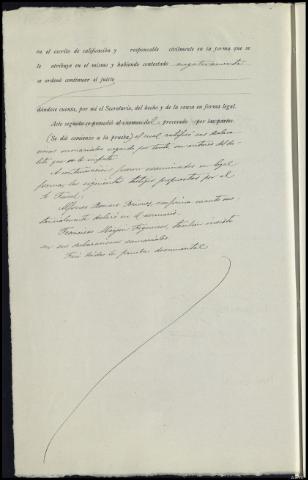 en el escrito de calificación y responsable civilmente en la forma que se
le atribuye en el mismo y habiendo contestado negativamente
se ordenó continuase el juicio
dándose cuenta, por mí el Secretario, del hecho y de la causa en forma legal.
Acto seguido se procedió al examen del procesado
(Se dió comienzo a la prueba) el cual ratificó sus declara
ciones sumariales negando por tanto ser autor del de
lito que se le imputa
A continuación fueron examinados en legal
forma los siguientes testigos propuestos por el
Sr Fiscal:
Alfonso Romero confirma cuanto sus
tancialmente declaró en el sumario.
Francisco Mayor Figueroa, también insiste
en sus declaraciones sumariales
Fué leida la prueba documental